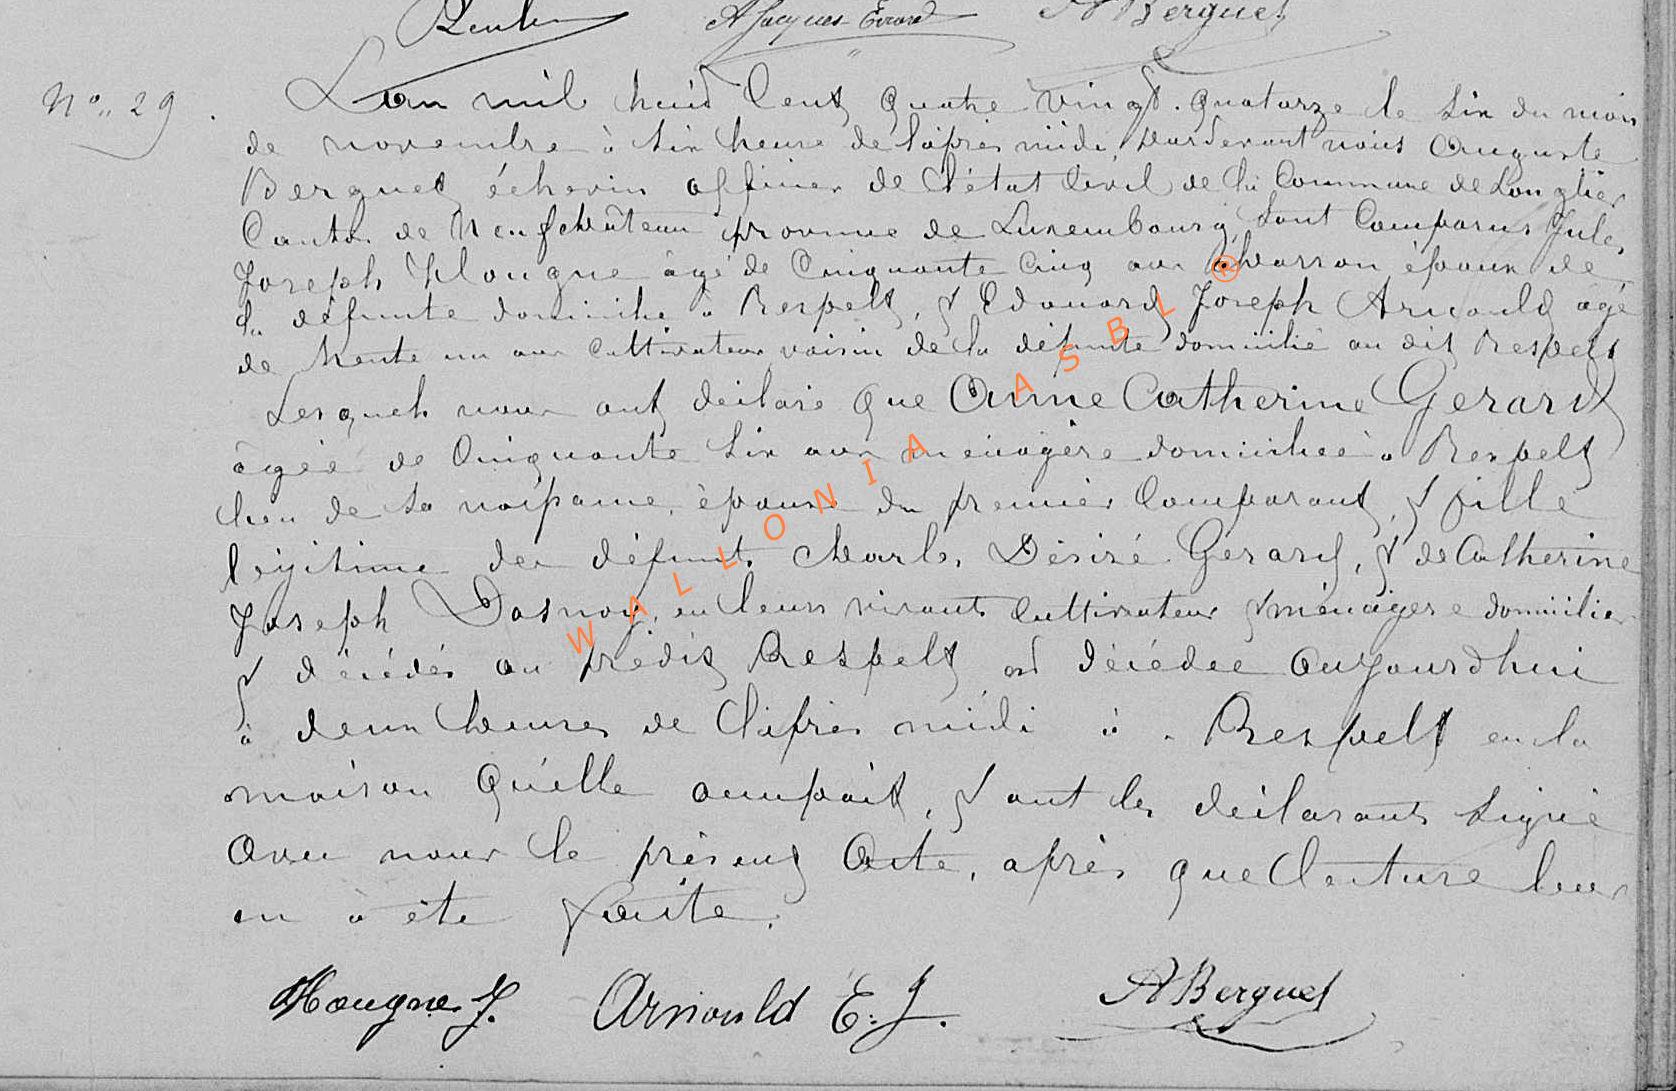 A Jacques Evrard A Berquet
N° 29. L'an mil huit cent quatre vingt. quatorze le six du mois
de novembre à six heure de l'après midi, pardevant nous Auguste
Berquet échevin officier de l'état civil de la commune de Longlier
Canton de Neufchâteau province de Luxembourg, sont comparus Jules
Joseph Hougne âgé de cinquante cinq ans charron, époux de
la défunte domicilié à Respelt, & Edouard Joseph Arnould âgé
de trente un ans cultivateur voisin de la défunte domicilié au dit Respelt
Lesquels nous ont déclaré que Anne Catherine Gerard
âgée de cinquante six ans ménagère domiciliée à Respelt
lieu de sa naissance, épouse du premier comparant, & fille
légitime des défunts Charles Désiré Gérard, & de Catherine
Joseph Dasnoy, en leurs vivants cultivateur & ménagère domiciliés
& décédés au prédit Respelt est décédée aujourdhui
à deux heures de l'après midi à Respelt en la
maison qu'elle occupait, & ont les déclarants signé
avec nous le présent acte, après que lecture leur
en a été faite.
Hougne J. Arnould E. J. A Berquet
WALLONIA ASBL ®